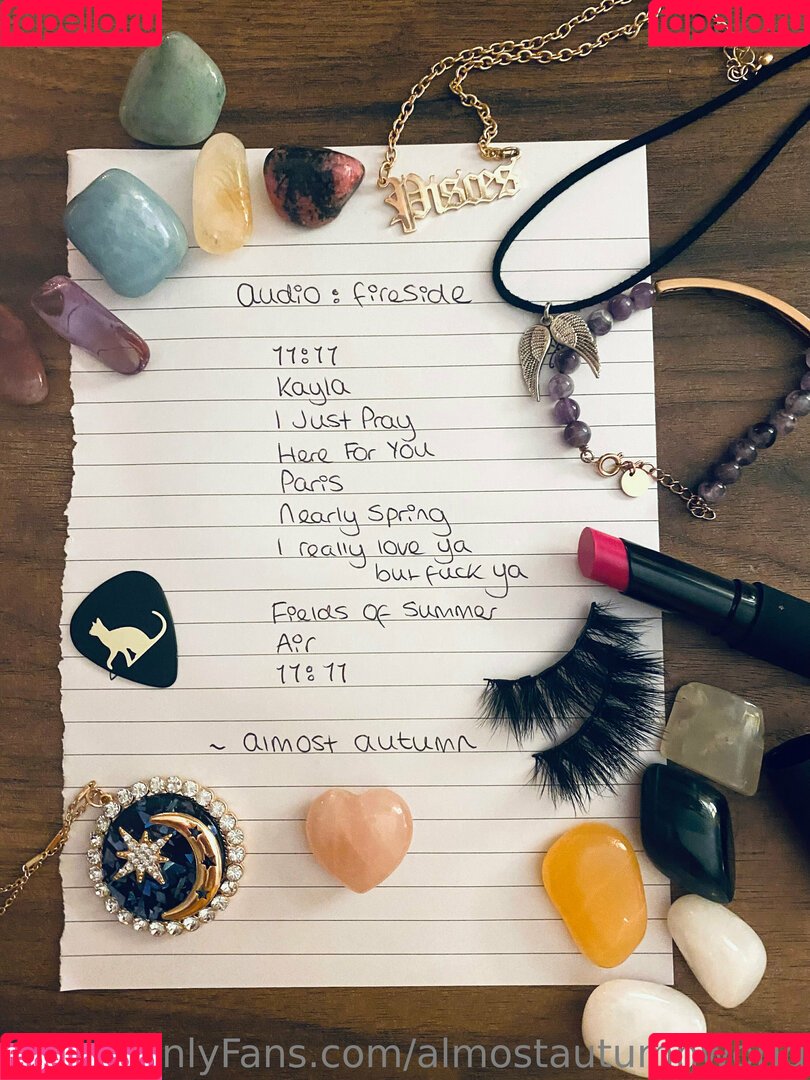 fapello.ru fapello.ru
Pisces
audio : fireside
11:11
Kayla
I Just Pray
Here For You
Paris
Nearly Spring
I really love ya
but fuck ya
Fields Of Summer
Air
11:11
~ almost autumn
fapello.ru nlyFans.com/almostautu fapello.ru